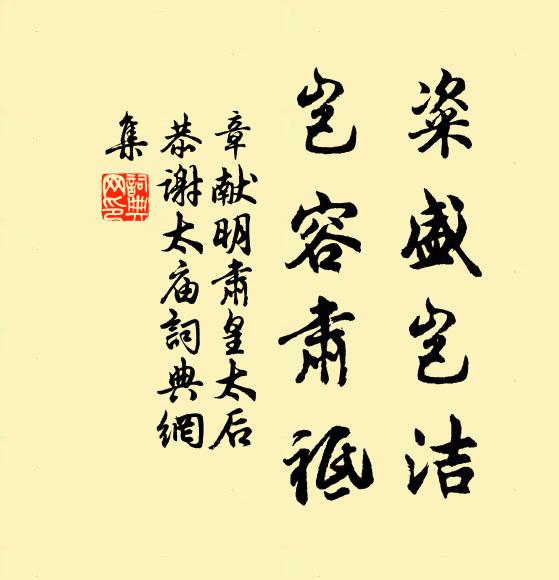 粢盛岂洁
岂容肃祗
章献明肃皇太后
恭谢太庙詞典網
集
詞典
网印